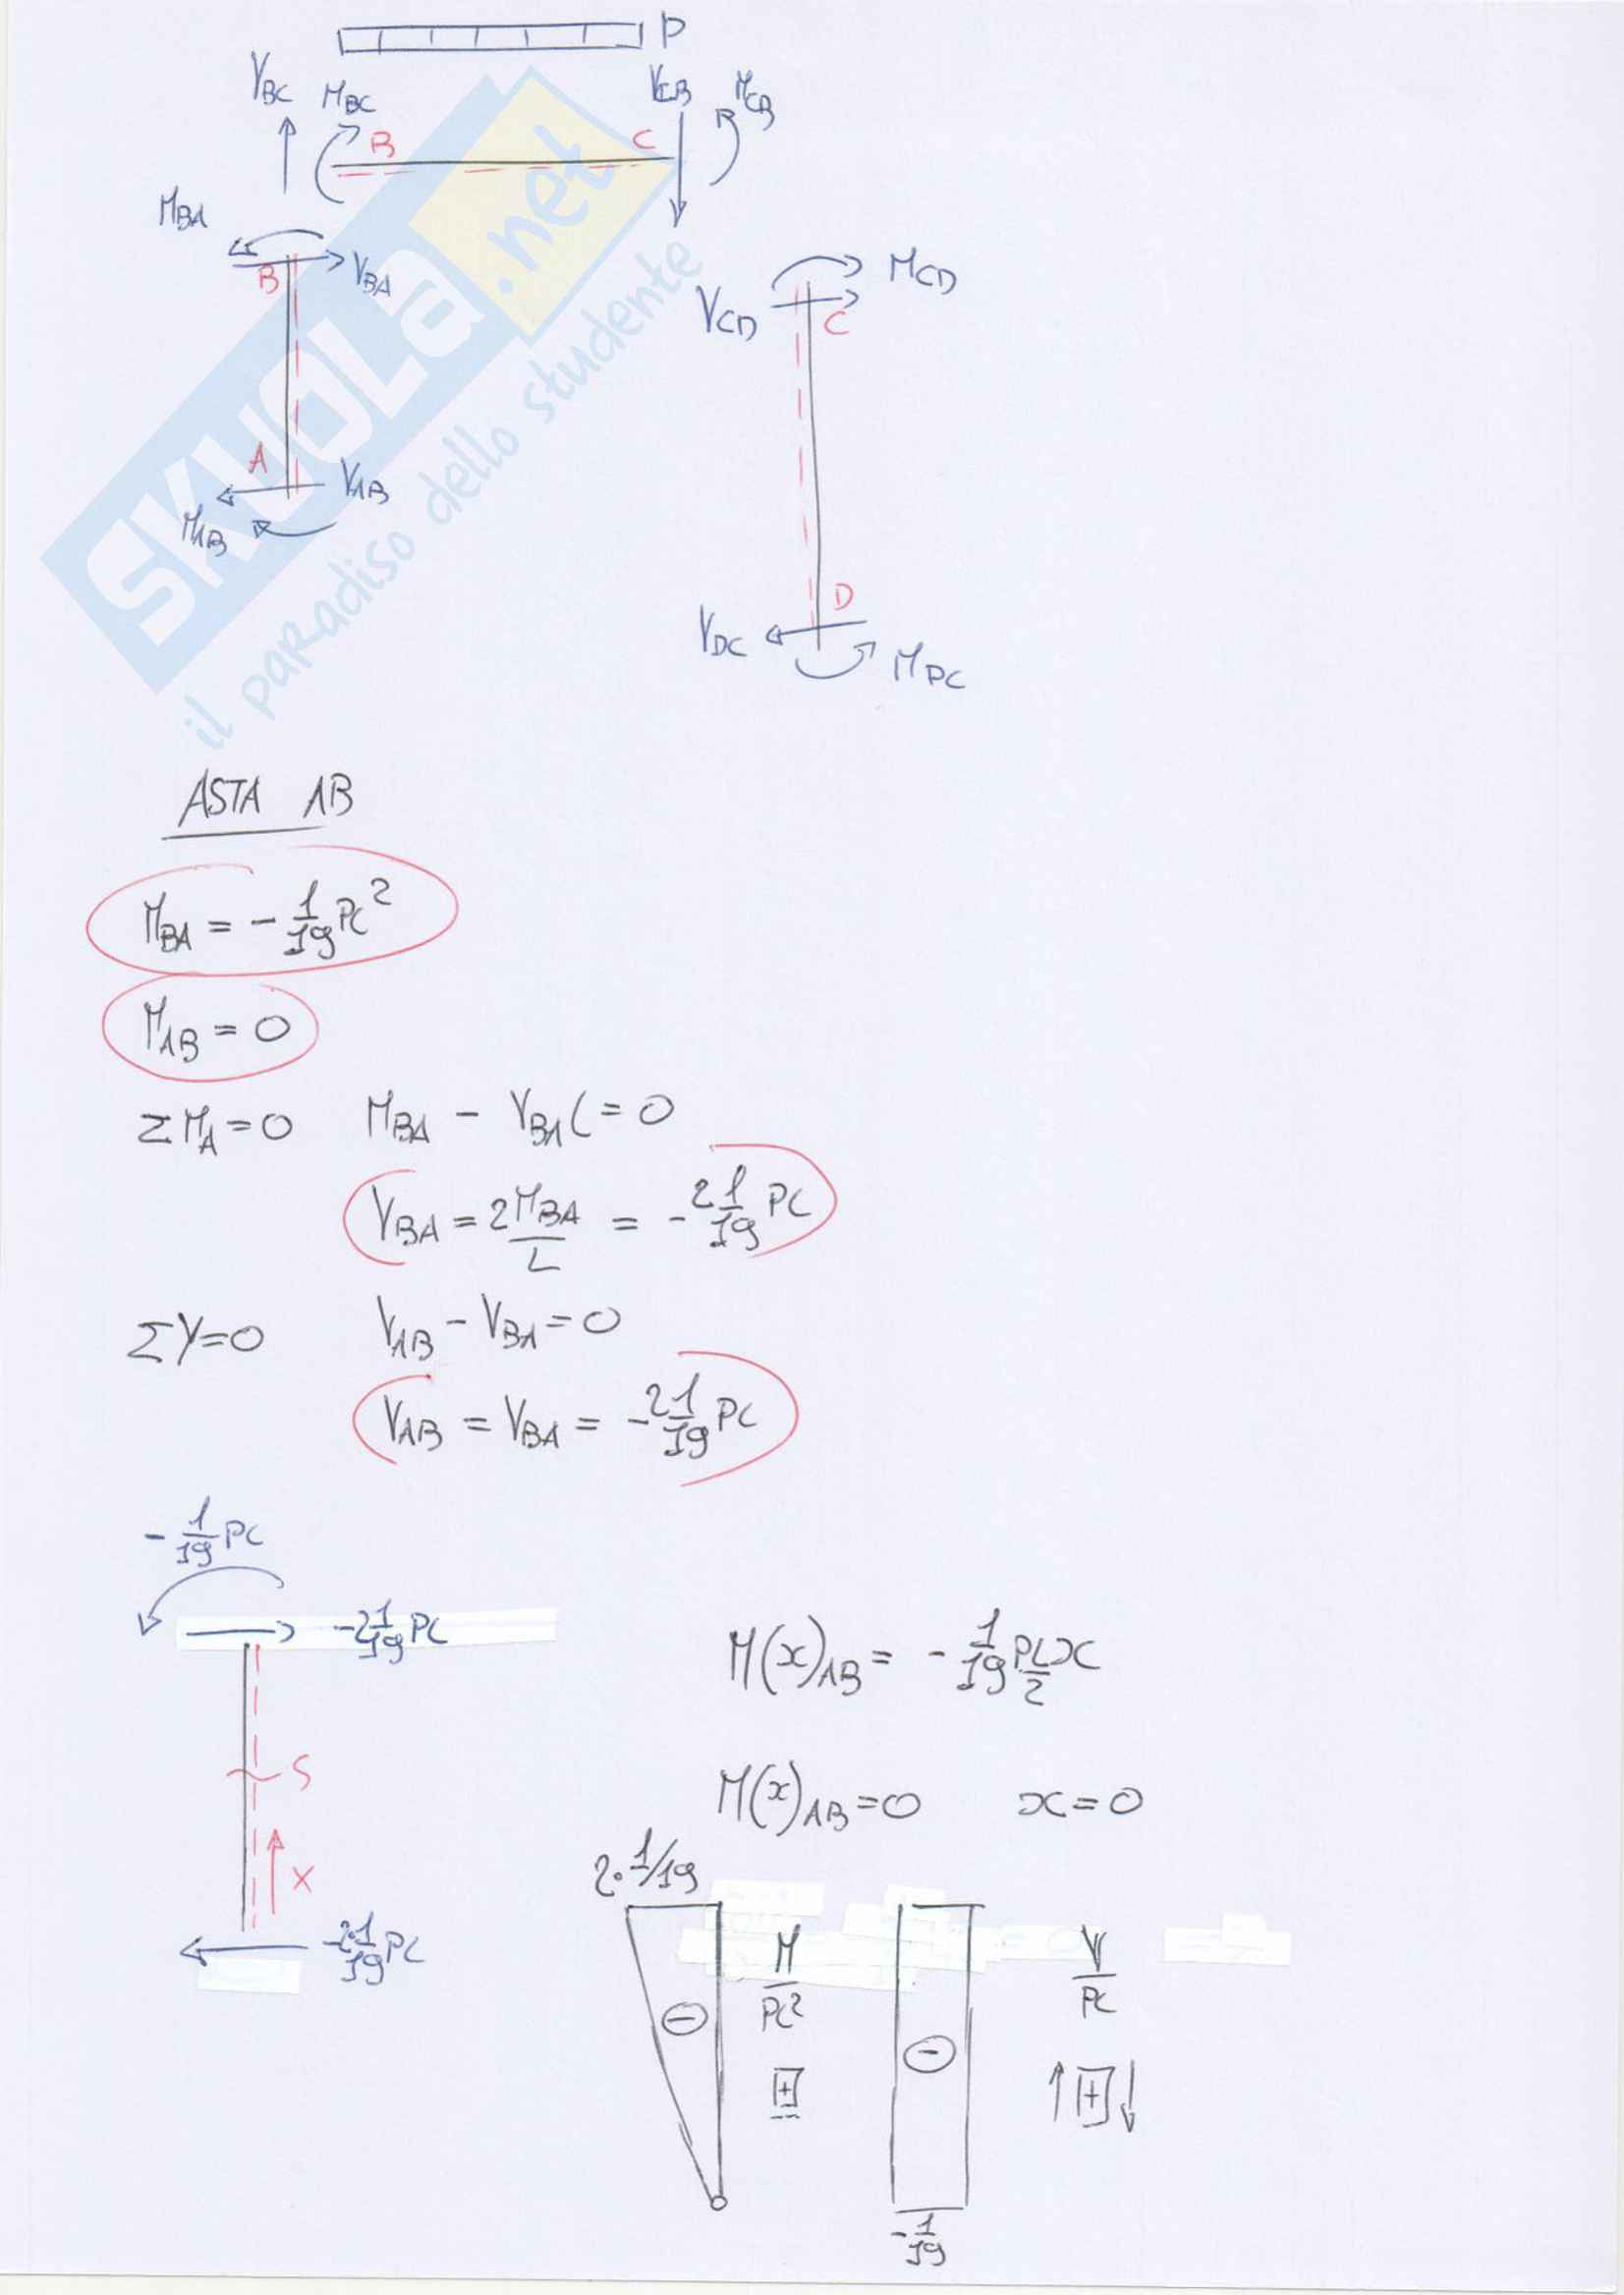 P
V_BC M_BC V_CB M_CB
B C
M_BA
B V_BA
M_CD
V_CD C
A V_AB
M_AB
D
V_DC M_DC
SKUOLA.net
il paradiso dello studente
ASTA AB
M_BA = - 1/19 PL²
M_AB = 0
ΣM_A = 0 M_BA - V_BA L = 0
V_BA = 2 M_BA / L = - 2 1/19 PL
ΣY = 0 V_AB - V_BA = 0
V_AB = V_BA = - 2 1/19 PL
- 1/19 PL
-2 1/19 PL
M(x)_AB = - 1/19 PL/2 x
S
M(x)_AB = 0 x = 0
X
2·1/19
-2 1/19 PL
M/PL² V/PL
- -
+ +
-1/19